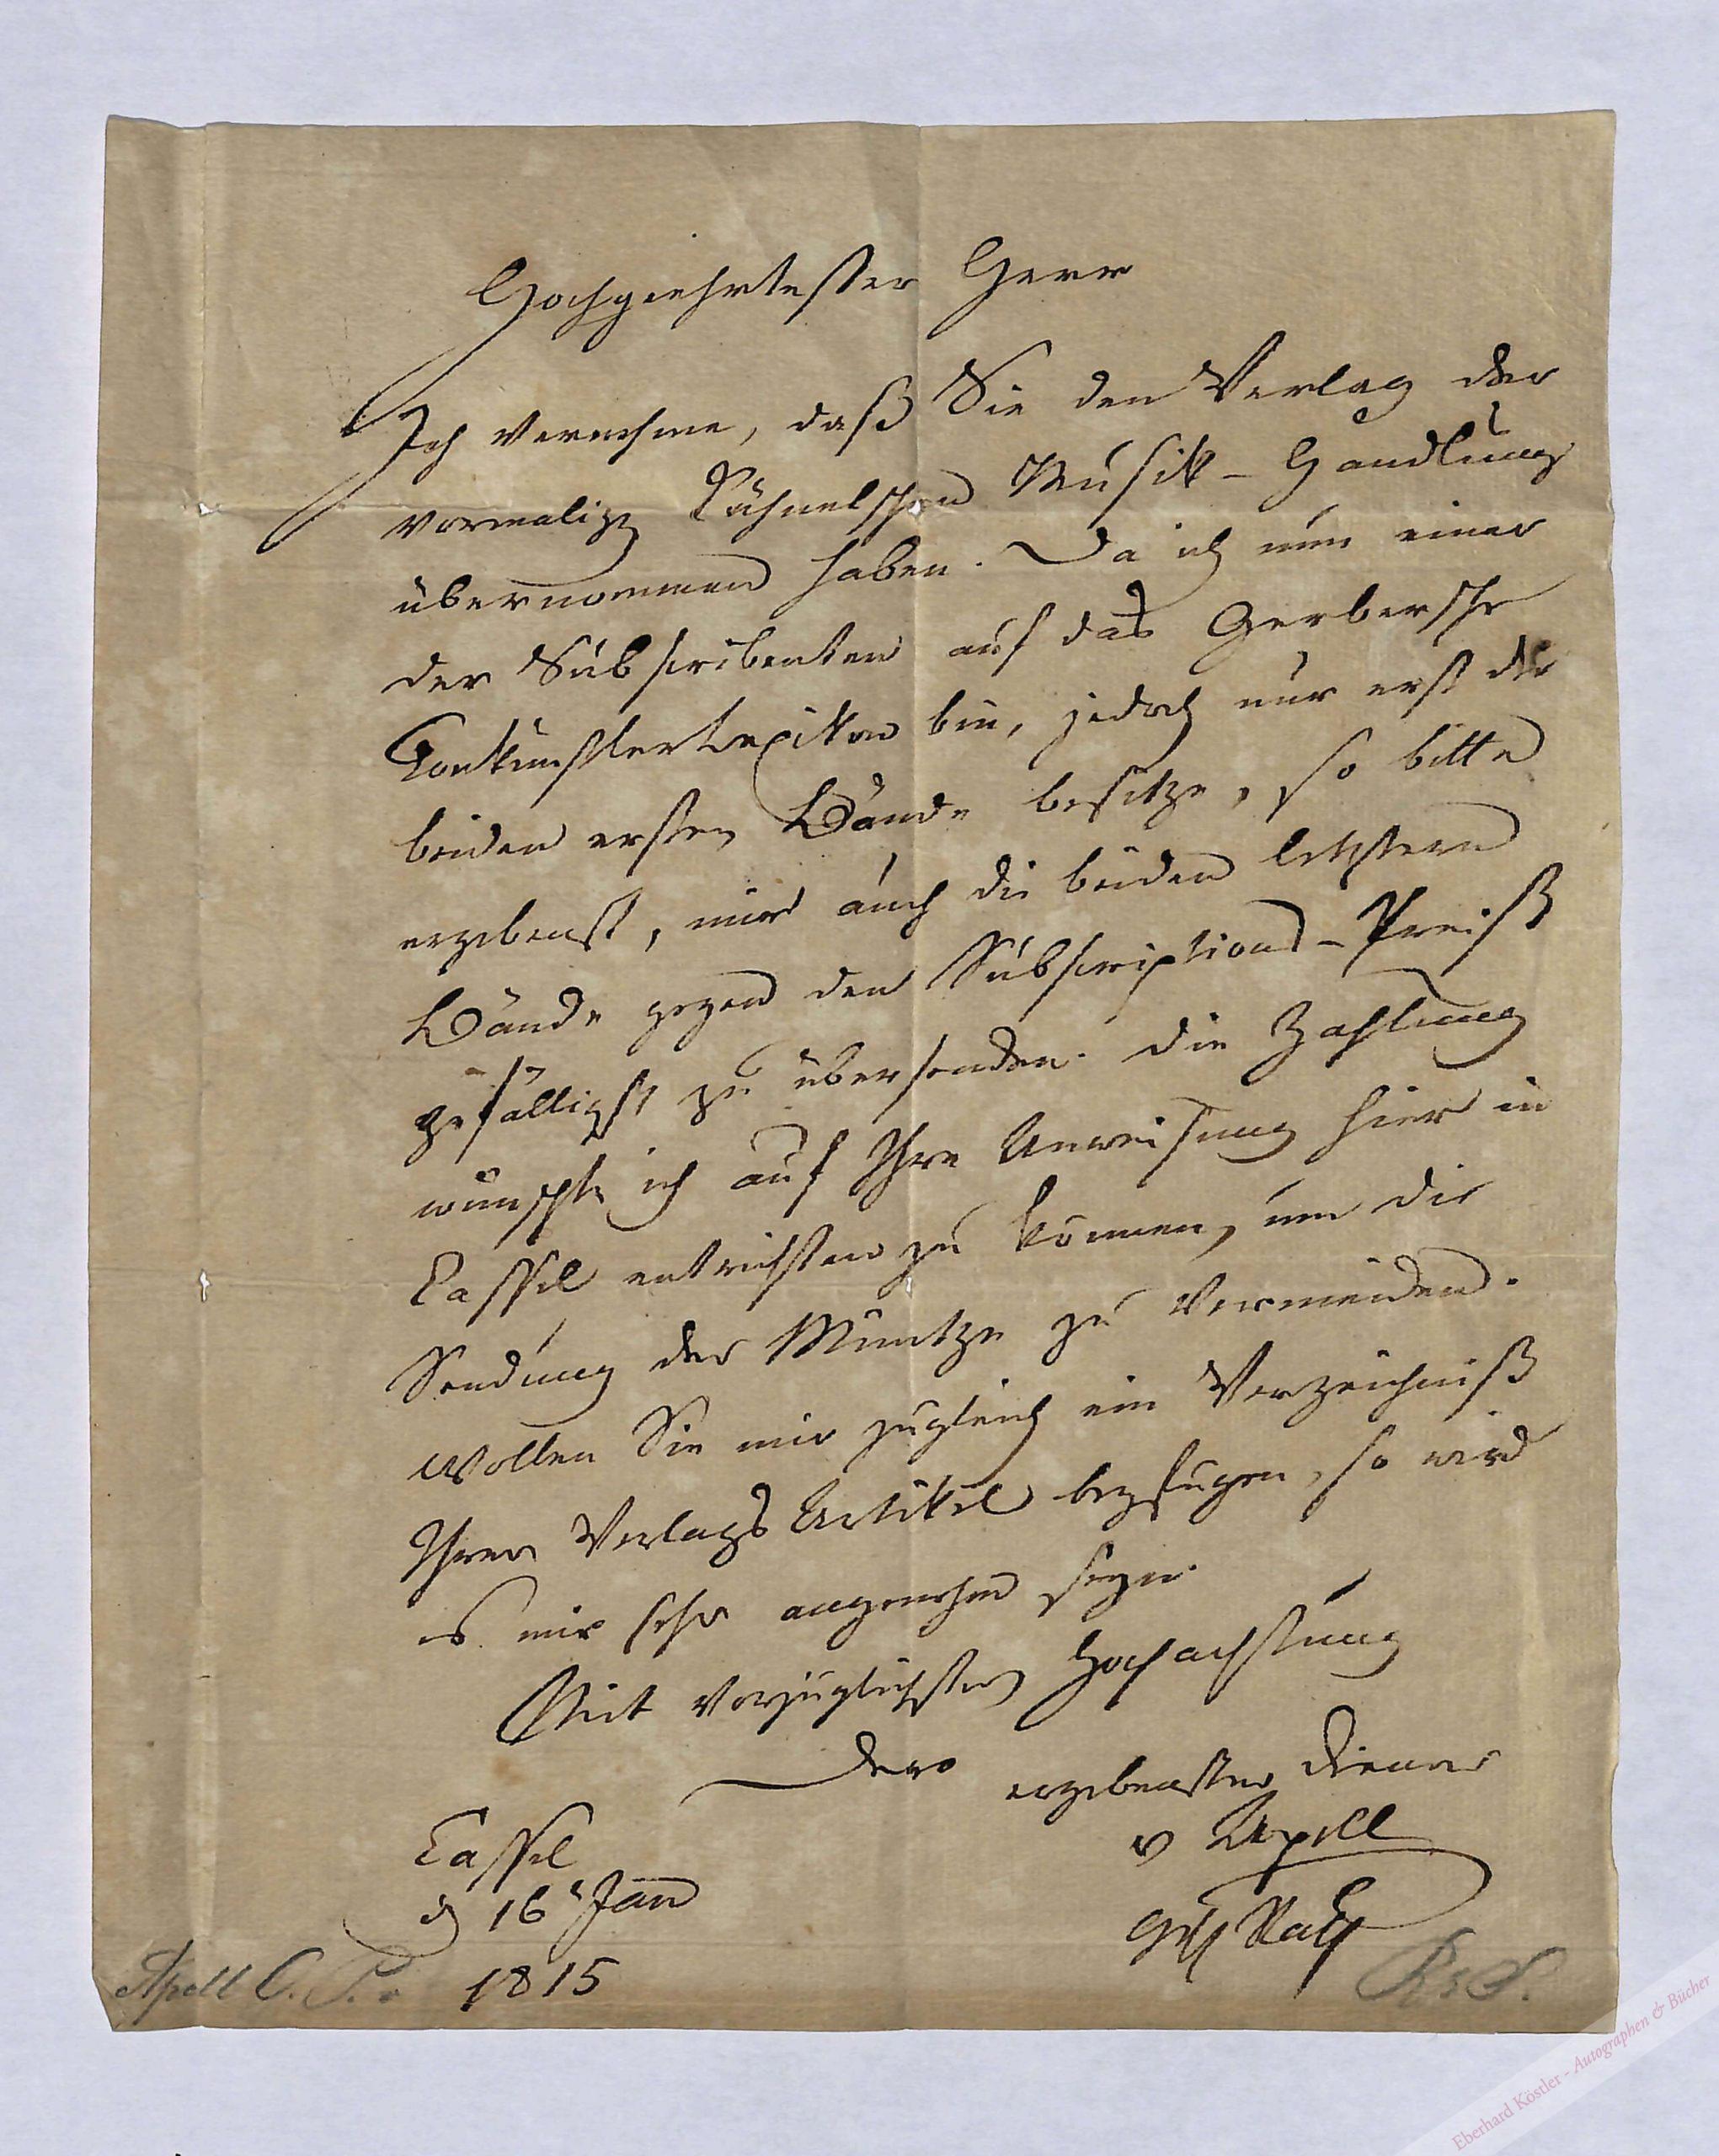 Hochgeehrtester Herr
Ich vernehme, daß Sie den Verlag der
vormalig Kühnelschen Musik-Handlung
übernommen haben. Da ich nun einer
der Subscribenten auf das Gerbersche
Tonkünstler Lexikon bin, jedoch nur erst die
beiden ersten Bände besitze, so bitte
ergebenst, mir auch die beiden letztern
Bände gegen den Subscriptions-Preiß
gefälligst zu übersenden. Die Zahlung
wünschte ich auf Ihre Anweisung hier in
Cassel entrichten zu können, um die
Sendung der Müntze zu vermeiden.
Wollen Sie mir zugleich ein Verzeichniß
Ihrer Verlags Artikel beyfügen, so wird
es mir sehr angenehm seyn.
Mit vorzüglichster Hochachtung
Dero ergebenster Diener
v Apell
Cassel
d 16t Jan
1815
Apell
Eberhard Köstler - Autographen & Bücher